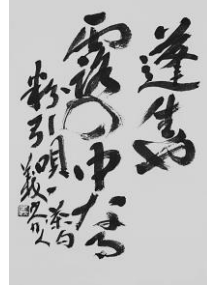 蓬生や
露の中なる
粉引唄 一茶句